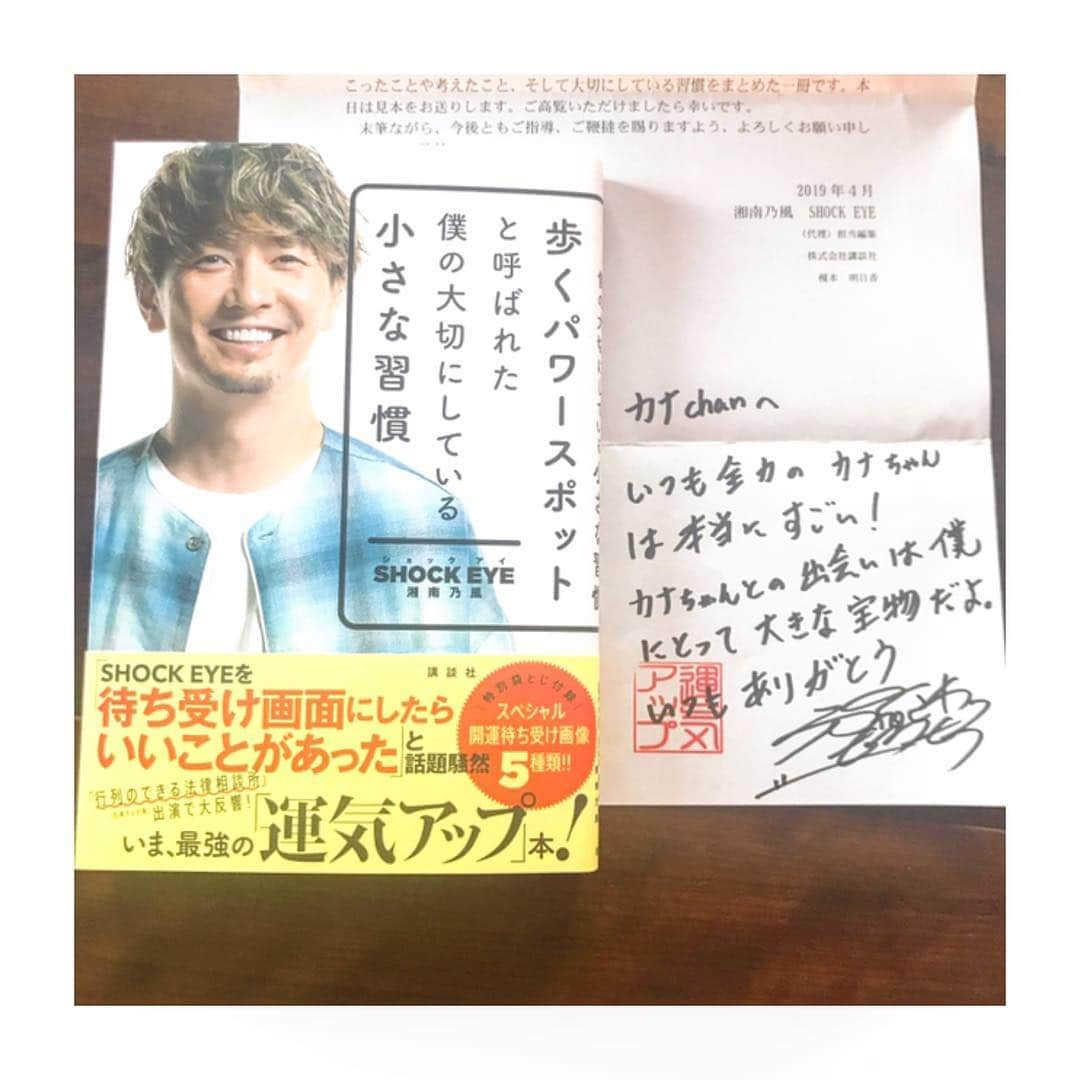 こったことや考えたこと、そして大切にしている習慣をまとめた一冊です。本
日は見本をお送りします。ご高覧いただけましたら幸いです。
末筆ながら、今後ともご指導、ご鞭撻を賜りますよう、よろしくお願い申し
2019年4月
湘南乃風 SHOCK EYE
(代理)担当編集
株式会社講談社
榎本 明日香
歩くパワースポット
と呼ばれた
僕の大切にしている
小さな習慣
ショックアイ
SHOCK EYE
湘南乃風
講談社
SHOCK EYEを
「待ち受け画面にしたら
いいことがあった」と
話題騒然
特別袋とじ付録
スペシャル
開運待ち受け画像
5種類!!
「行列のできる法律相談所」
出演で大反響!
いま、最強の「運気アップ」本!
カナchanへ
いつも全力の カナちゃん
は本当に すごい!
カナちゃんとの出会いは僕
にとって 大きな宝物だよ。
いつも ありがとう
運気
アップ